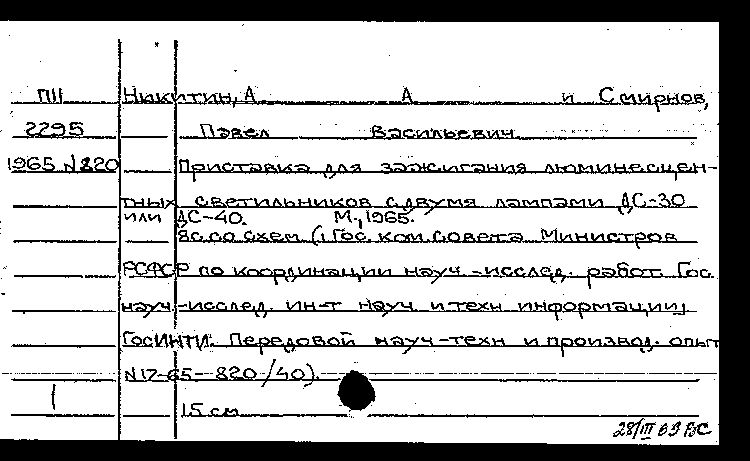 ПII Никитин, А А и Смирнов,
2295 Павел Васильевич
1965 N820 Приставка для зажигания люминесцен-
тных светильников с двумя лампами ДС-30
или ДС-40. М., 1965.
8с. со схем (Гос. ком. Совета Министров
РСФСР по координации науч.-исслед. работ. Гос.
науч.-исслед. ин-т науч и техн информации,
ГосИНТИ. Передовой науч-техн и производ. опыт
N17-65-820/40).
1 15 см
28/III 69 ВС